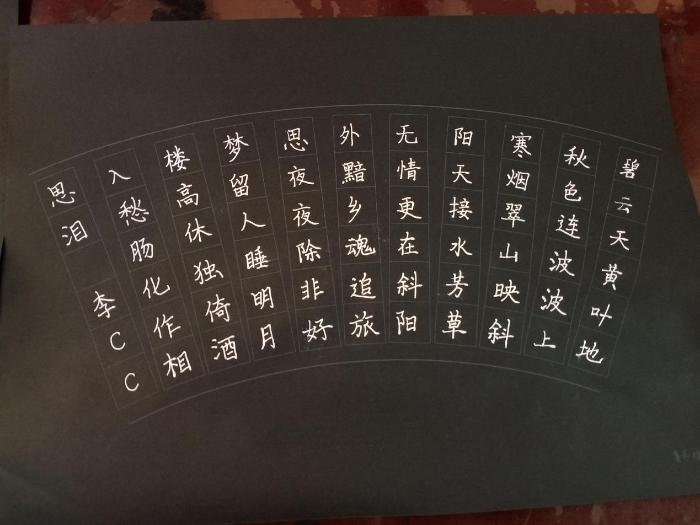 碧云天黄叶地
秋色连波波上
寒烟翠山映斜
阳天接水芳草
无情更在斜阳
外黯乡魂追旅
思夜夜除非好
梦留人睡明月
楼高休独倚酒
入愁肠化作相
思泪 李CC